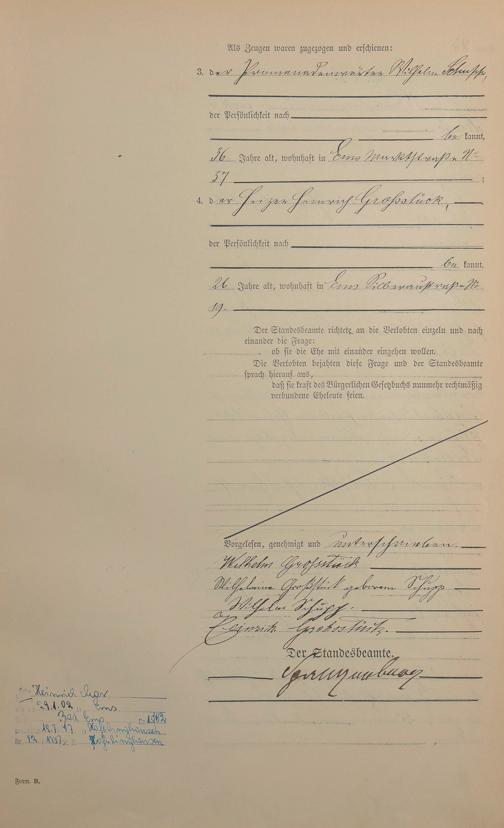 Als Zeugen waren zugezogen und erschienen:
3. der Promenadenwärter Wilhelm Schupp,
der Persönlichkeit nach
be kannt,
56 Jahre alt, wohnhaft in Ems Marktstraße No
57 ;
4. der Heizer Heinrich Großstück,
der Persönlichkeit nach
be kannt,
26 Jahre alt, wohnhaft in Ems Silberaustraße No
19.
Der Standesbeamte richtete an die Verlobten einzeln und nach
einander die Frage:
ob sie die Ehe mit einander eingehen wollen.
Die Verlobten bejahten diese Frage und der Standesbeamte
sprach hierauf aus,
daß sie kraft des Bürgerlichen Gesetzbuchs nunmehr rechtmäßig
verbundene Eheleute seien.
Vorgelesen, genehmigt und unterschrieben.
Wilhelm Großstück
Wilhelmine Großstück geborene Schupp
Wilhelm Schupp.
Heinrich Großstück.
Der Standesbeamte.
Heinrich
Ems
Bad Ems
Form. B.